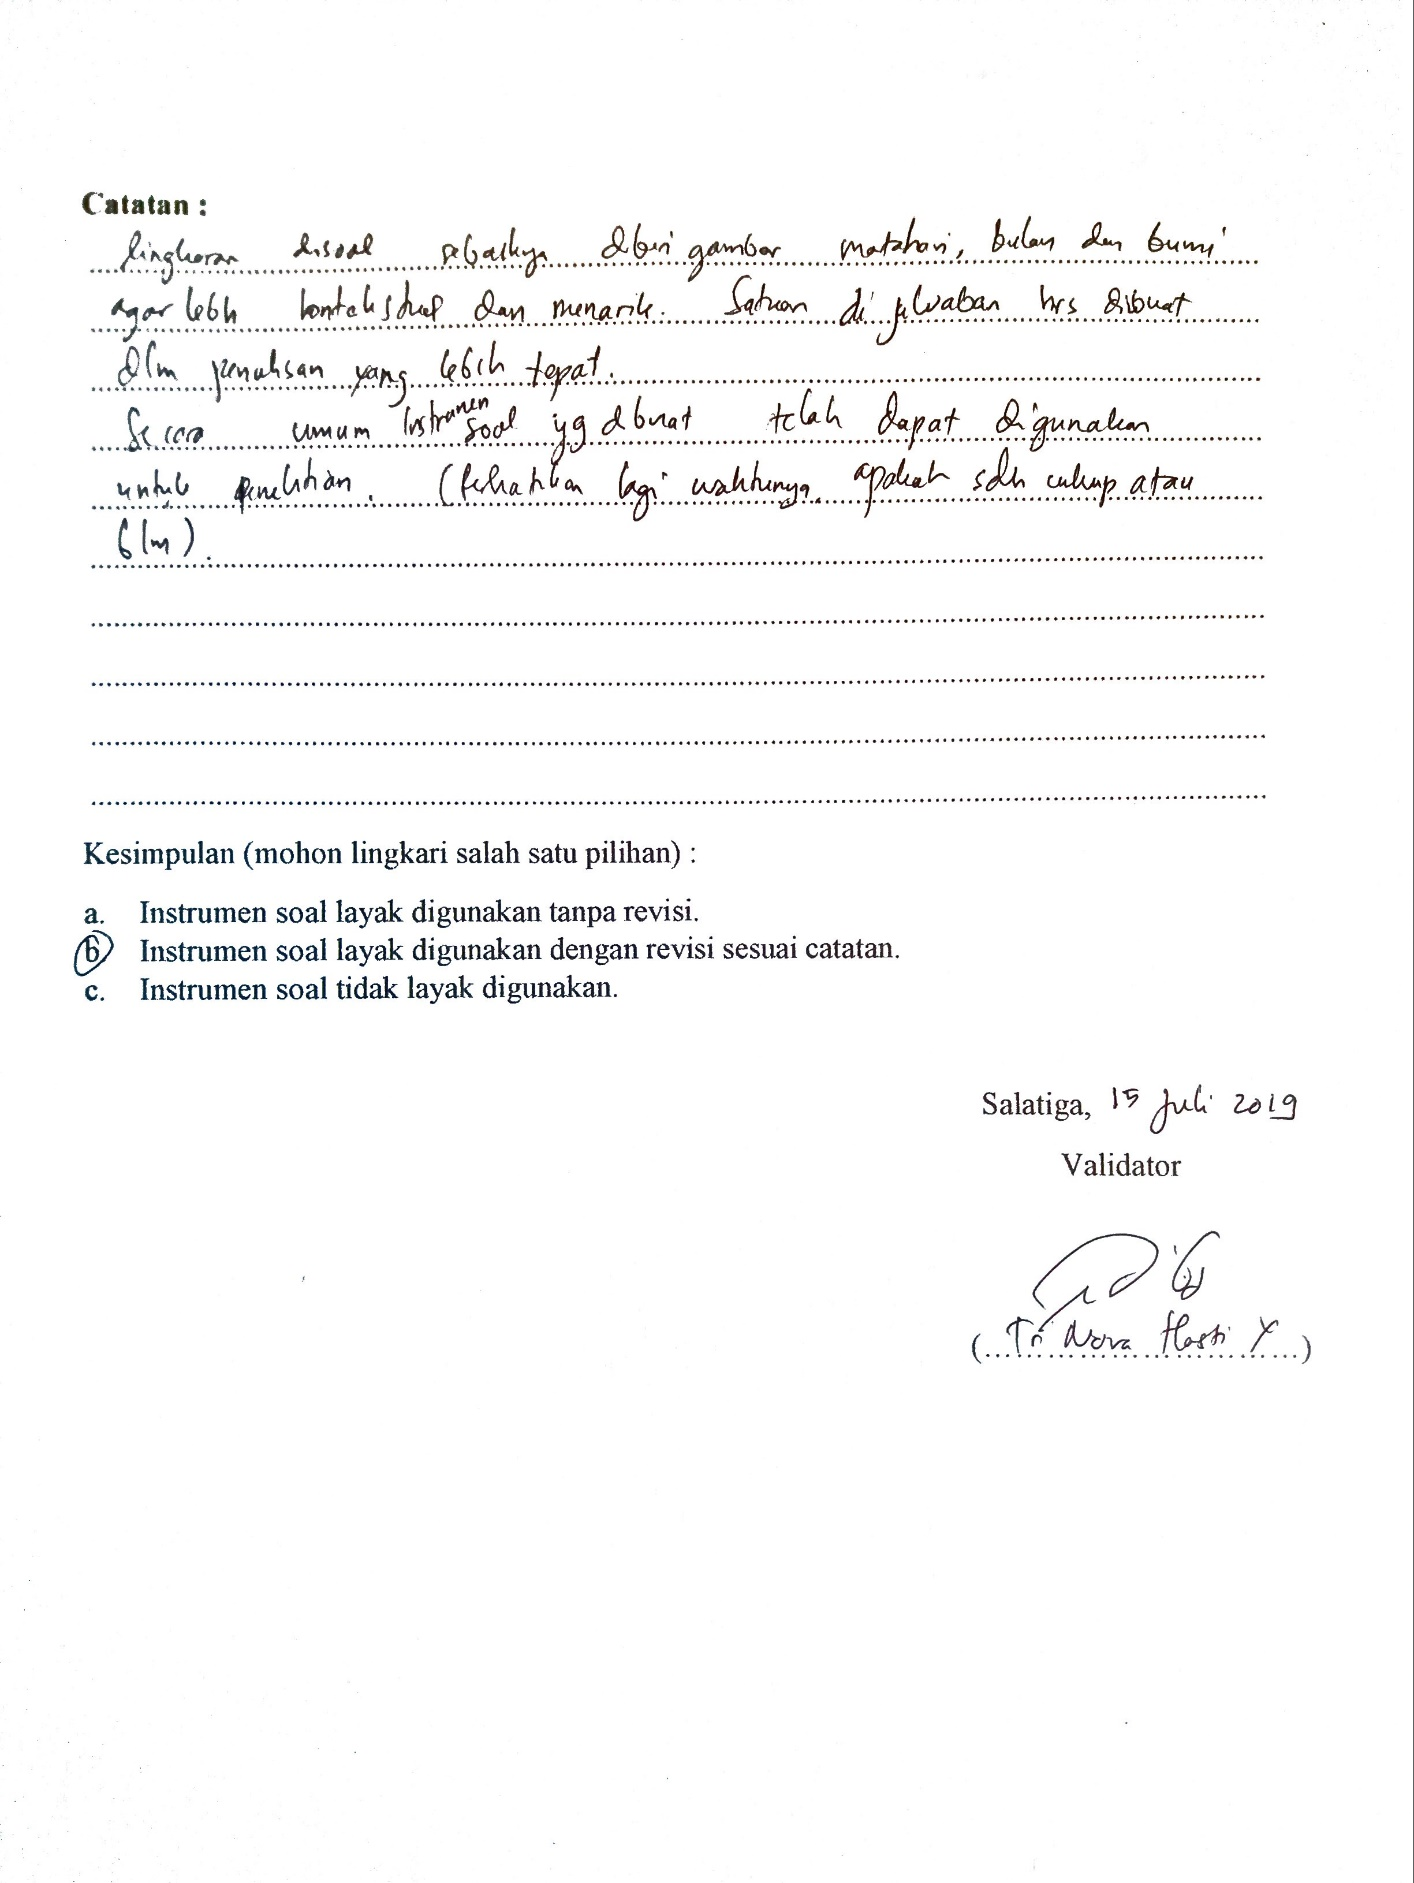 Catatan :
lingkaran disoal sebaiknya diberi gambar matahari, bulan dan bumi
agar lebih kontekstual dan menarik. Satuan di jawaban hrs dibuat
dlm penulisan yang lebih tepat.
Secara umum Instrumen soal yg dibuat telah dapat digunakan
untuk penelitian. (Perhatikan lagi waktunya apakah sdh cukup atau
blm).
Kesimpulan (mohon lingkari salah satu pilihan) :
a. Instrumen soal layak digunakan tanpa revisi.
b Instrumen soal layak digunakan dengan revisi sesuai catatan.
c. Instrumen soal tidak layak digunakan.
Salatiga, 15 Juli 2019
Validator
(Tri Nova Hasti Y)